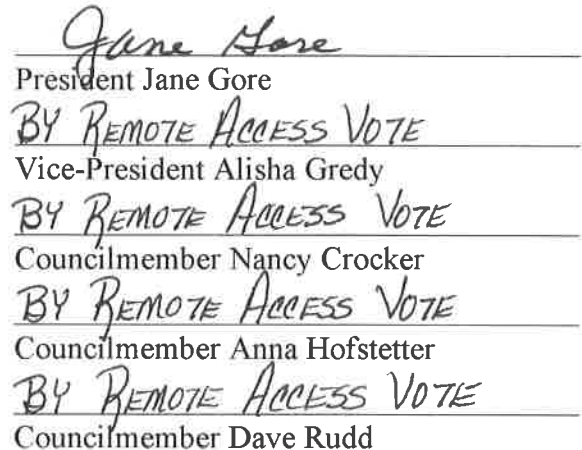 Jane Gore
President Jane Gore
BY REMOTE ACCESS VOTE
Vice-President Alisha Gredy
BY REMOTE ACCESS VOTE
Councilmember Nancy Crocker
BY REMOTE ACCESS VOTE
Councilmember Anna Hofstetter
BY REMOTE ACCESS VOTE
Councilmember Dave Rudd